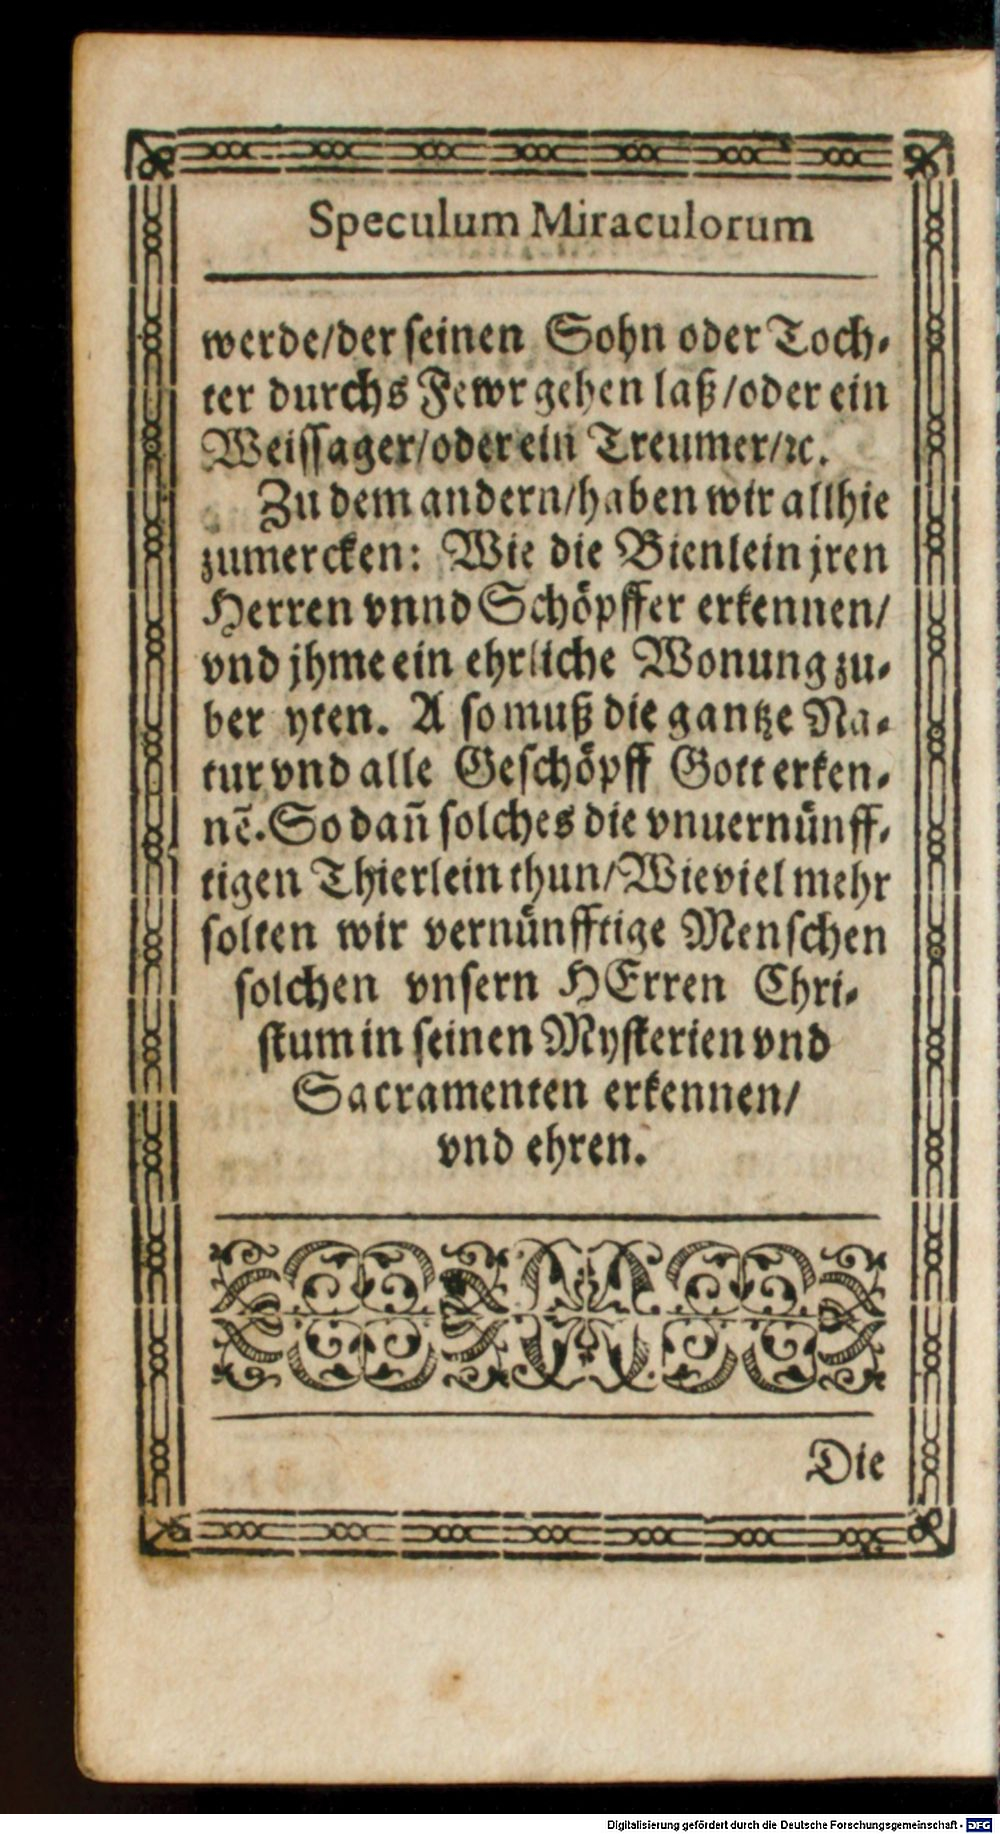 Speculum Miraculorum
werde/der seinen Sohn oder Toch-
ter durchs Fewr gehen laß/oder ein
Weissager/oder ein Treumer/ꝛc.
Zu dem andern/haben wir allhie
zumercken: Wie die Bienlein jren
Herren vnnd Schöpffer erkennen/
vnd jhme ein ehrliche Wonung zu-
ber yten. A so muß die gantze Na-
tur vnd alle Geschöpff Gott erken-
nẽ. So dañ solches die vnuernünff-
tigen Thierlein thun/Wieviel mehr
solten wir vernünfftige Menschen
solchen vnsern HErren Chri-
stum in seinen Mysterien vnd
Sacramenten erkennen/
vnd ehren.
Die
Digitalisierung gefördert durch die Deutsche Forschungsgemeinschaft - DFG